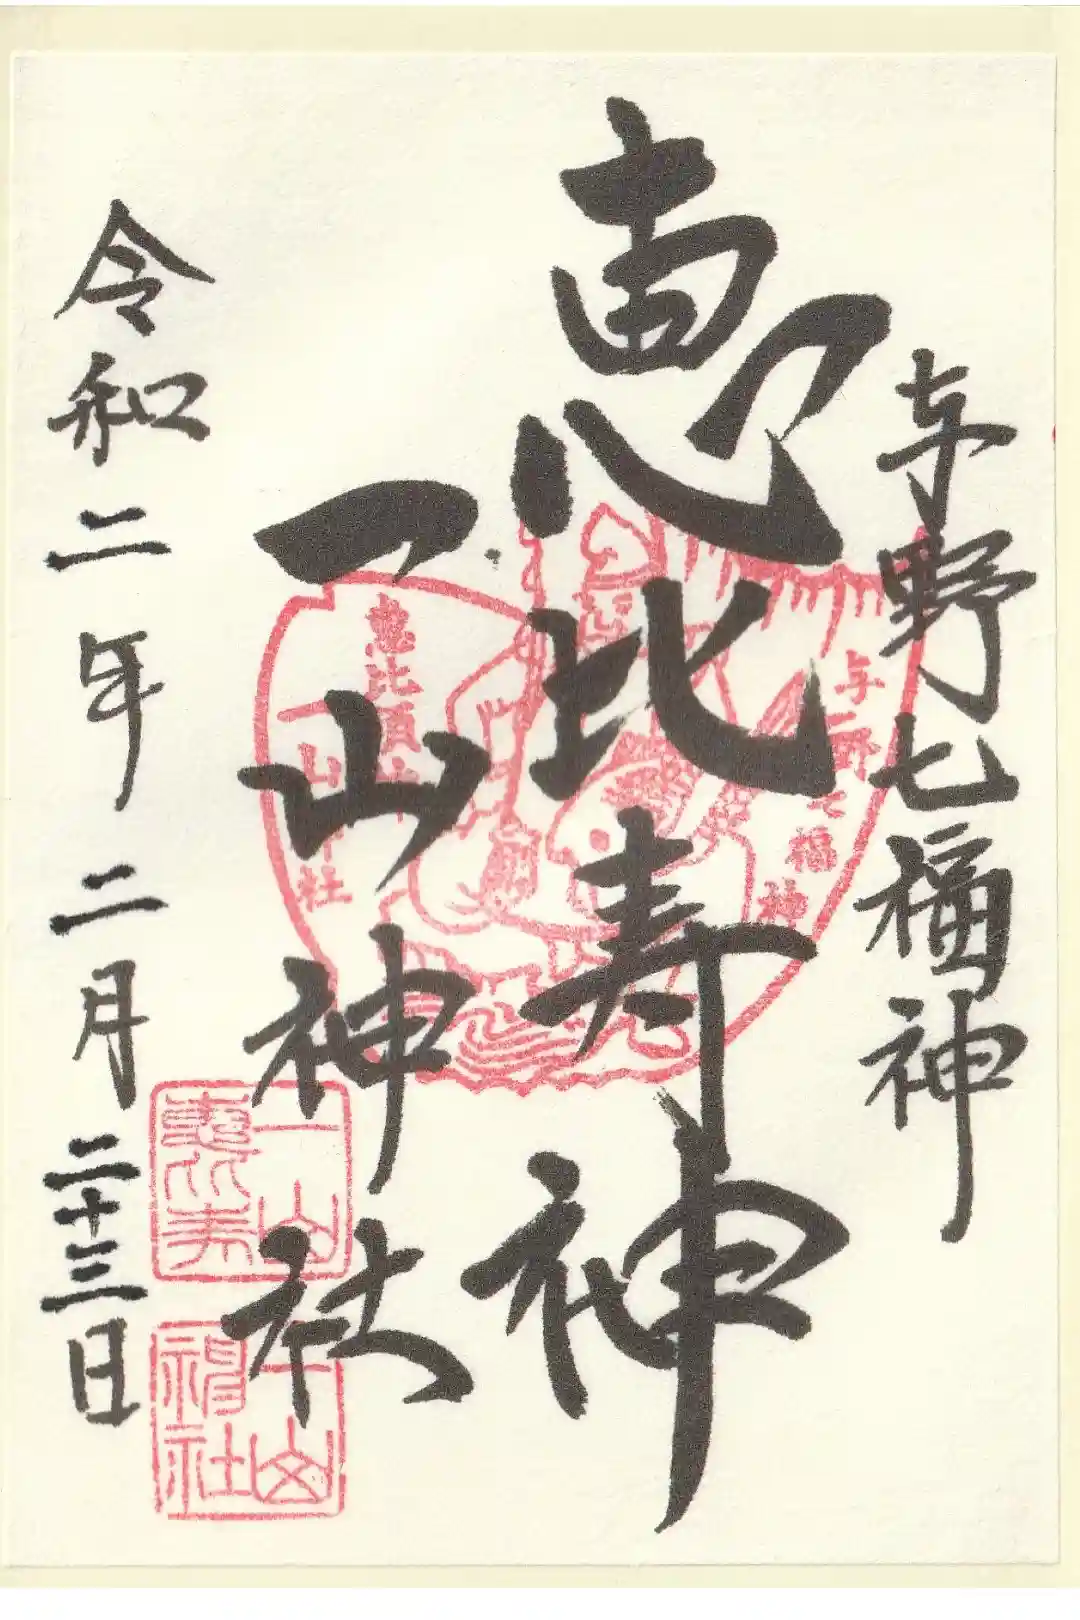 与野七福神
恵比寿神
一山神社
令和二年二月二十三日
与野七福神
一山神社
一山
神社